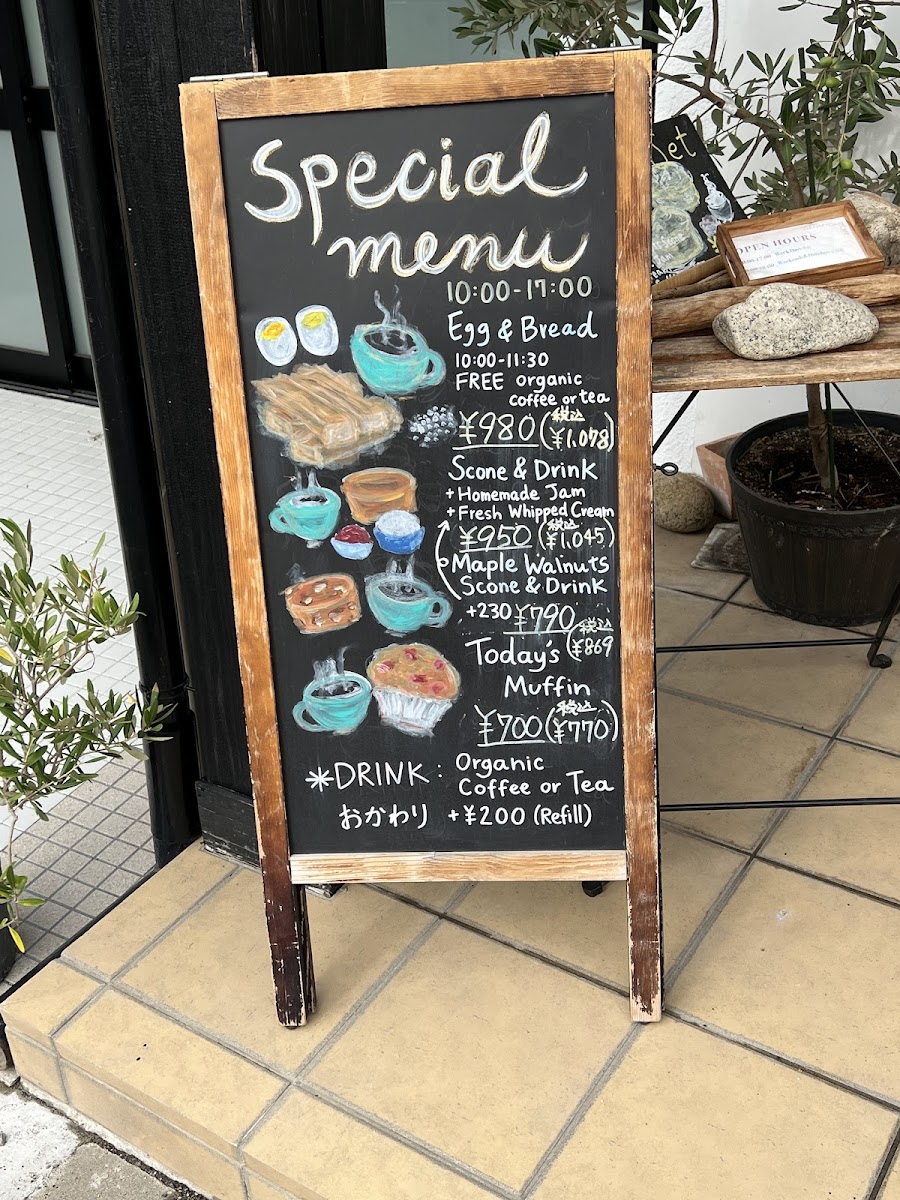 Special
menu
10:00-17:00
Egg & Bread
10:00-11:30
FREE organic
coffee or tea
¥980 (税込 ¥1,078)
Scone & Drink
+ Homemade Jam
+ Fresh Whipped Cream
¥950 (税込 ¥1,045)
Maple Walnuts
Scone & Drink
+230 ¥790
(税込 ¥869
Today's
Muffin
¥700 (税込 ¥770)
*DRINK: Organic
Coffee or Tea
おかわり +¥200 (Refill)
OPEN HOURS